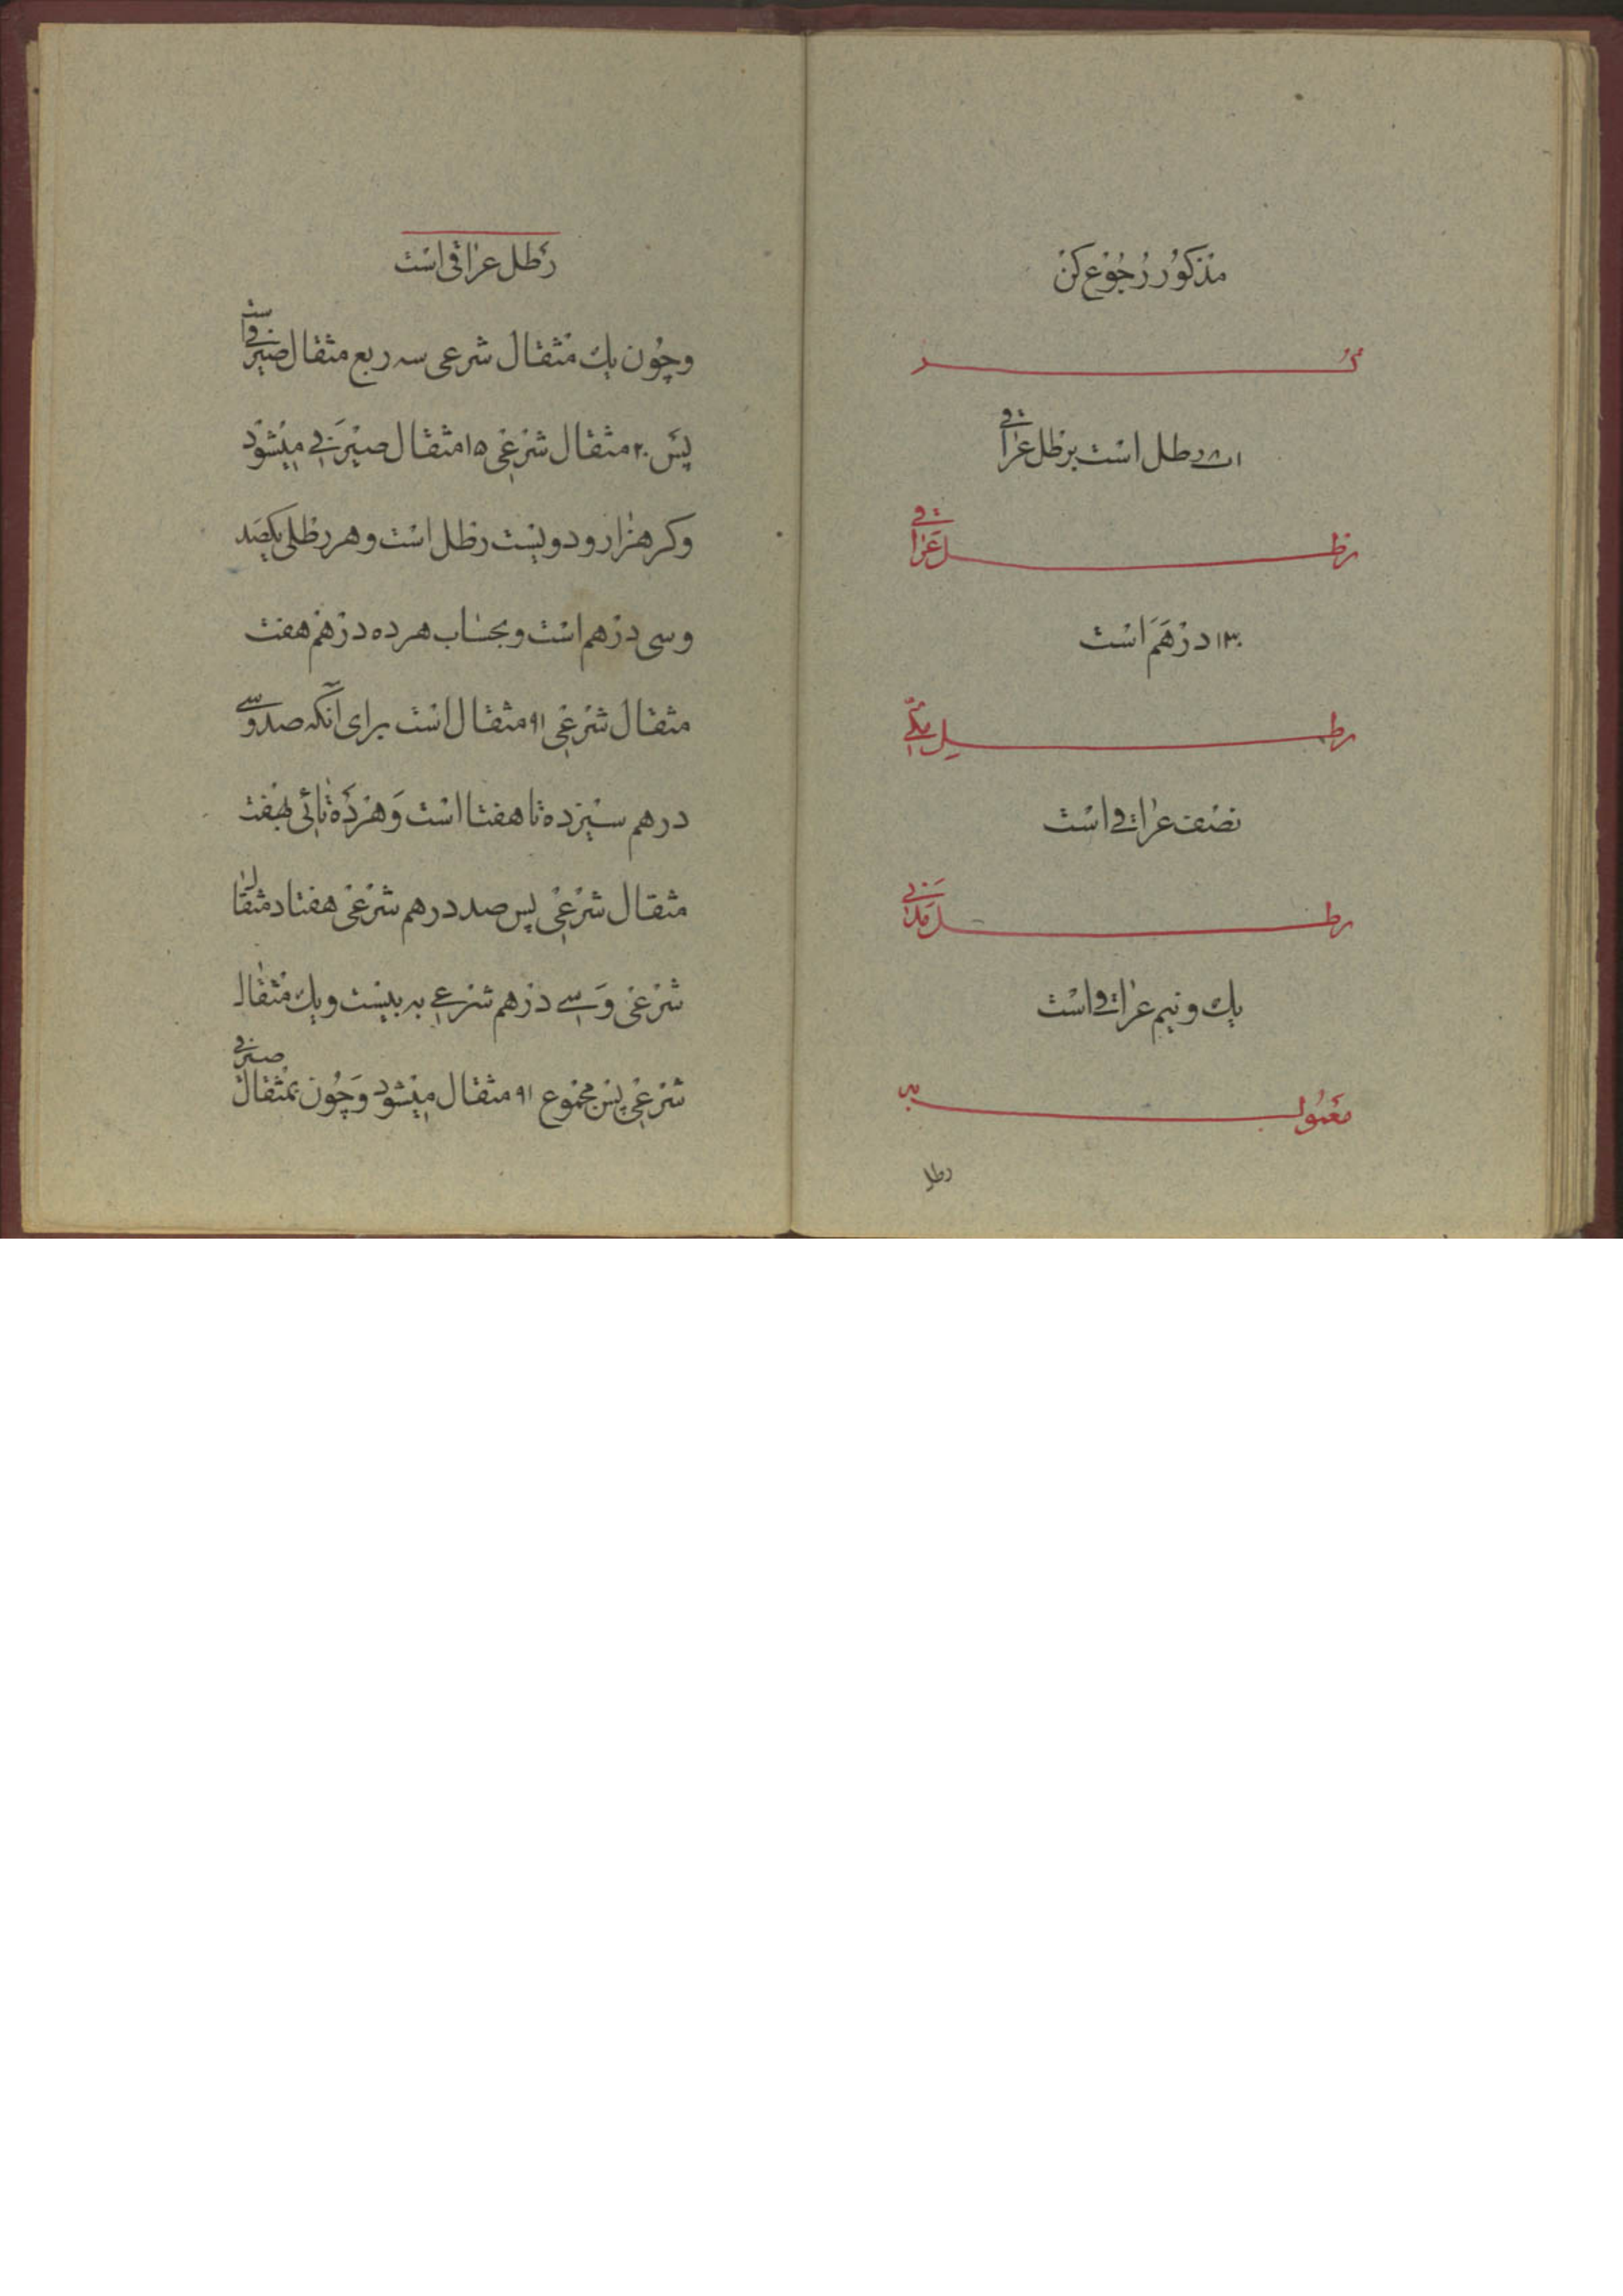 مذکور رجوع کن
کر
رطل است برطل عراقی
رطل عراقی
۱۳۰ درهم است
رطل مکی
نصف عراقی است
رطل مدنی
یك و نیم عراقی است
معمول به
رطل
رطل عراقی است
و چون یك مثقال شرعی سه ربع مثقال صیرفی است
پس ۲۰ مثقال شرعی ۱۵ مثقال صیرفی میشود
و کر هزار و دویست رطل است و هر رطلی یکصد
و سی درهم است و بحساب هر ده درهم هفت
مثقال شرعی ۹۱ مثقال است برای آنکه صد و سی
درهم سیزده تا هفتا است و هر ده تائی هفت
مثقال شرعی پس صد درهم شرعی هفتاد مثقال
شرعی و سی درهم شرعی به بیست و یك مثقال
شرعی پس مجموع ۹۱ مثقال میشود و چون بمثقال صیرفی